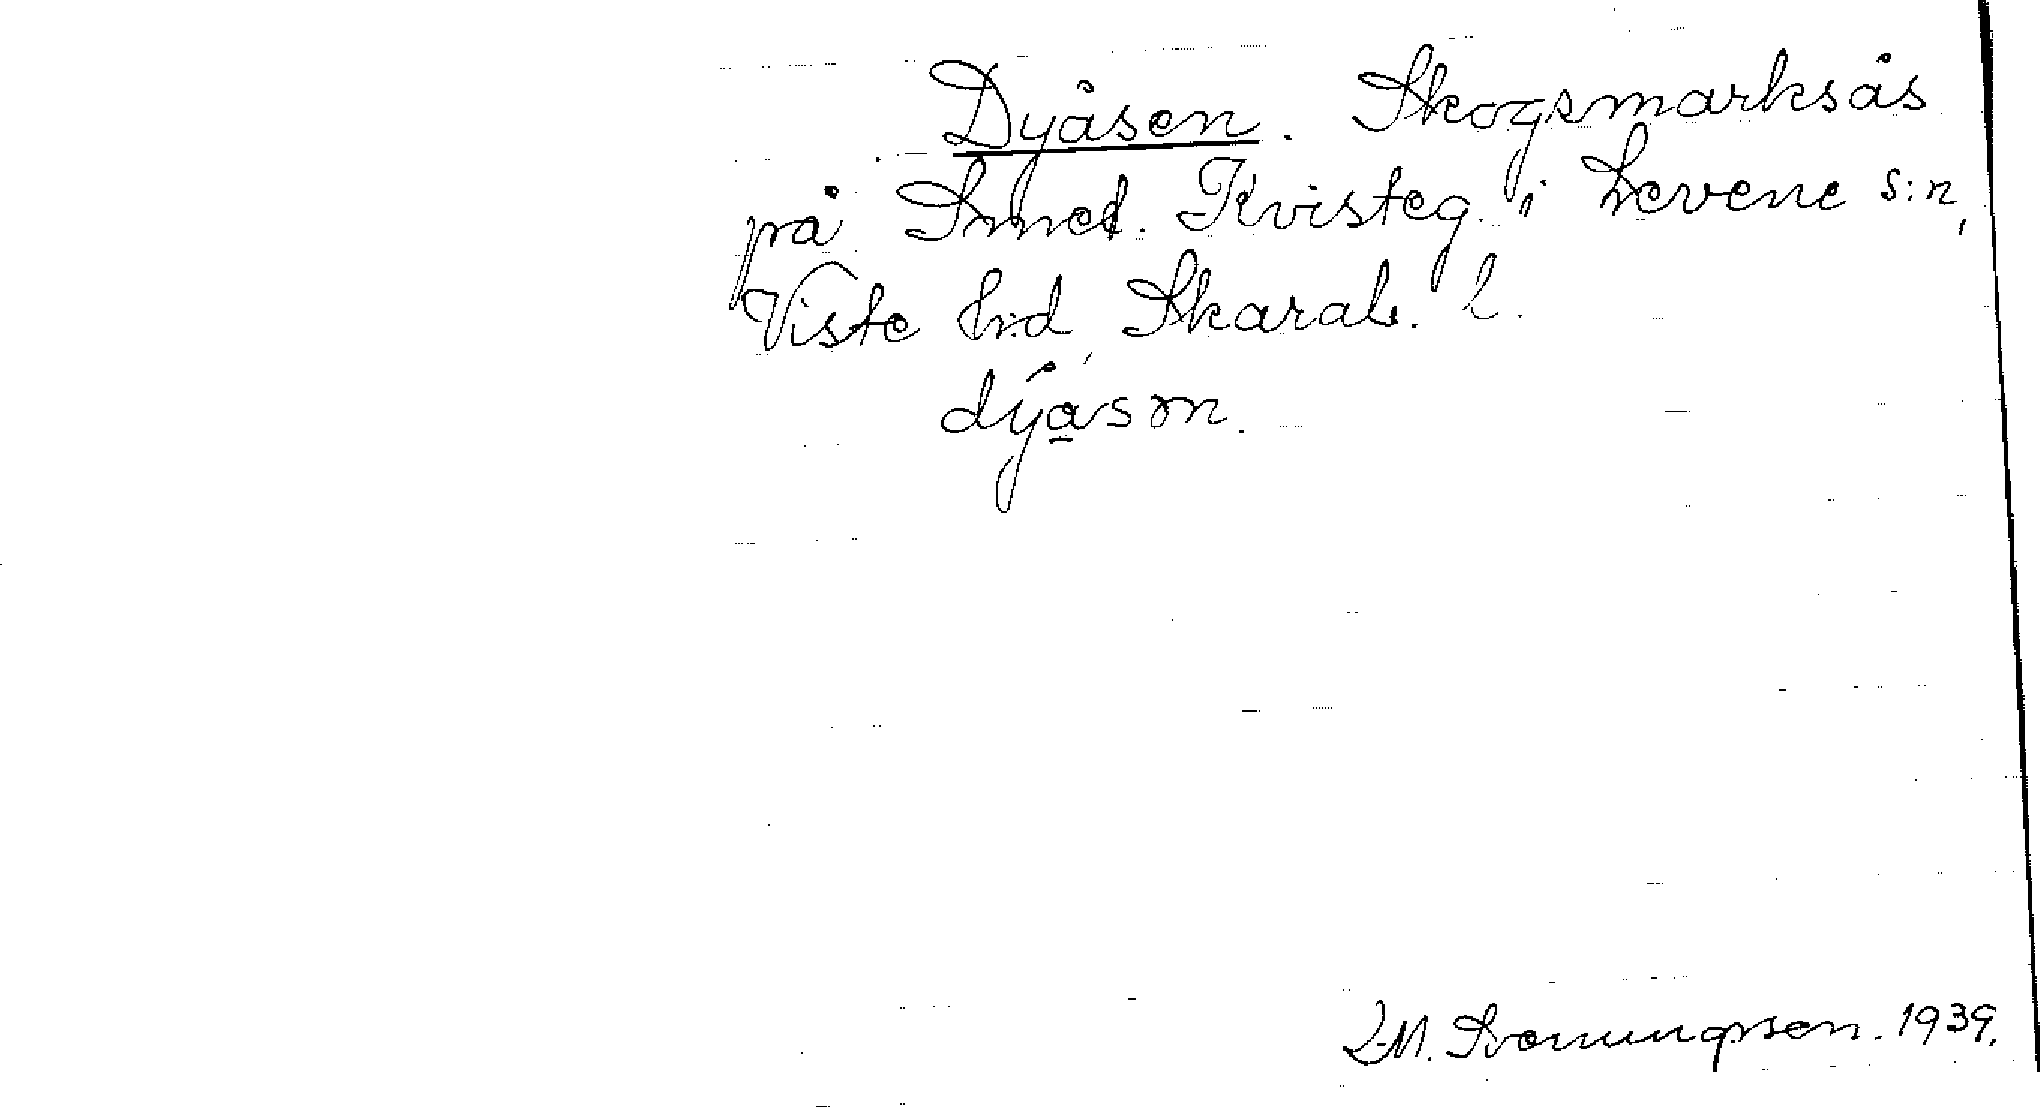 Dyåsen. Skogsmarksås
på Smed. Kvisteg. i Levene s:n,
Viste h:d, Skarab. l.
dýåsɷn.
L-M. Svanungsson. 1939.